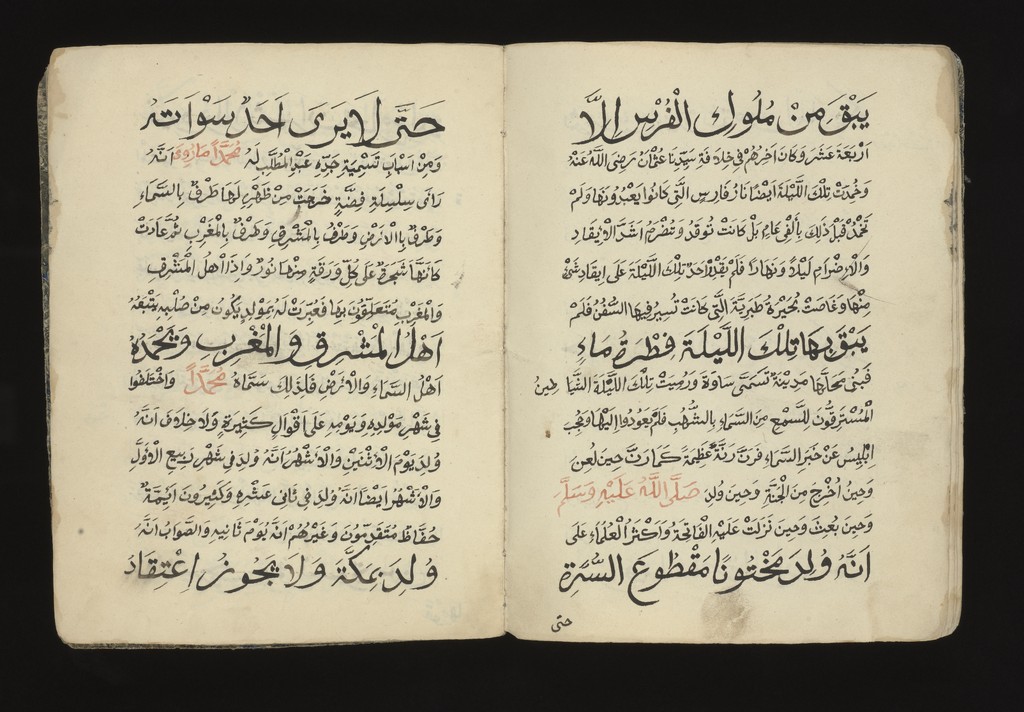 يَبْقَ مِنْ مُلُوكِ الْفُرْسِ إِلَّا
اَرْبَعَةَ عَشَرَ وَكَانَ آخِرُهُمْ فِي خِلَافَةِ سَيِّدِنَا عُثْمَانَ رَضِيَ اللَّهُ عَنْهُ
وَخُمِدَتْ تِلْكَ اللَّيْلَةَ اَيْضًا نَارُ فَارِسِ الَّتِي كَانُوا يَعْبُدُونَهَا وَلَمْ
تَخْمُدْ قَبْلَ ذَلِكَ بِأَلْفَيْ عَامٍ بَلْ كَانَتْ تُوقَدُ وَتُضْرَمُ اَشَدَّ الْاِيقَادِ
وَالْاِضْرَامِ لَيْلًا وَنَهَارًا فَلَمْ يَقْدِرْ اَحَدٌ تِلْكَ اللَّيْلَةَ عَلَى اِيقَادِ شَيْءٍ
مِنْهَا وَغَاضَتْ بُحَيْرَةُ طَبَرِيَّةَ الَّتِي كَانَتْ تَسِيرُ فِيهَا السُّفُنُ فَلَمْ
يَبْقَ بِهَا تِلْكَ اللَّيْلَةَ قَطْرَةُ مَاءٍ
فَبُنِيَ مَحَلَّهَا مَدِينَةٌ تُسَمَّى سَاوَةَ وَرُمِيَتْ تِلْكَ اللَّيْلَةَ الشَّيَاطِينُ
الْمُسْتَرِقُونَ لِلسَّمْعِ مِنَ السَّمَاءِ بِالشُّهُبِ فَلَمْ يَعُودُوا اِلَيْهَا وَحُجِبَ
اِبْلِيسُ عَنْ خَبَرِ السَّمَاءِ فَرَنَّ رَنَّةً عَظِيمَةً كَمَا رَنَّ حِينَ لُعِنَ
وَحِينَ اُخْرِجَ مِنَ الْجَنَّةِ وَحِينَ وُلِدَ صَلَّى اللَّهُ عَلَيْهِ وَسَلَّمَ
وَحِينَ بُعِثَ وَحِينَ نَزَلَتْ عَلَيْهِ الْفَاتِحَةُ وَاَكْثَرُ الْعُلَمَاءِ عَلَى
اَنَّهُ وُلِدَ مَخْتُونًا مَقْطُوعَ السُّرَّةِ
حتى
حَتَّى لَا يَرَى اَحَدٌ سَوْاَتَهُ
وَمِنْ اَسْبَابِ تَسْمِيَةِ جَدِّهِ عَبْدِ الْمُطَّلِبِ لَهُ مُحَمَّدًا مَا رُوِيَ اَنَّهُ
رَاَى سِلْسِلَةِ فِضَّةٍ خَرَجَتْ مِنْ ظَهْرِهِ لَهَا طَرَفٌ بِالسَّمَاءِ
وَطَرَفٌ بِالْاَرْضِ وَطَرَفٌ بِالْمَشْرِقِ وَطَرَفٌ بِالْمَغْرِبِ ثُمَّ عَادَتْ
كَاَنَّهَا شَجَرَةٌ عَلَى كُلِّ وَرَقَةٍ مِنْهَا نُورٌ وَاِذَا اَهْلُ الْمَشْرِقِ
وَالْمَغْرِبِ مُتَعَلِّقُونَ بِهَا فَعُبِّرَتْ لَهُ بِمَوْلُودٍ يَكُونُ مِنْ صُلْبِهِ يَتْبَعُهُ
اَهْلُ الْمَشْرِقِ وَالْمَغْرِبِ وَيَحْمَدُهُ
اَهْلُ السَّمَاءِ وَالْاَرْضِ فَلِذَلِكَ سَمَّاهُ مُحَمَّدًا وَاخْتَلَفُوا
فِي شَهْرِ مَوْلِدِهِ وَيَوْمِهِ عَلَى اَقْوَالٍ كَثِيرَةٍ وَلَا خِلَافَ اَنَّهُ
وُلِدَ يَوْمَ الْاِثْنَيْنِ وَالْاَشْهَرُ اَنَّهُ وُلِدَ فِي شَهْرِ رَبِيعِ الْاَوَّلِ
وَالْاَشْهَرُ اَيْضًا اَنَّهُ وُلِدَ فِي ثَانِي عَشْرِهِ وَكَثِيرُونَ اَئِمَّةٌ
حُفَّاظٌ مُتَقَدِّمُونَ وَغَيْرُهُمْ اَنَّهُ يَوْمَ ثَانِيهِ وَالصَّوَابُ اَنَّهُ
وُلِدَ بِمَكَّةَ وَلَا يَجُوزُ اِعْتِقَادُ